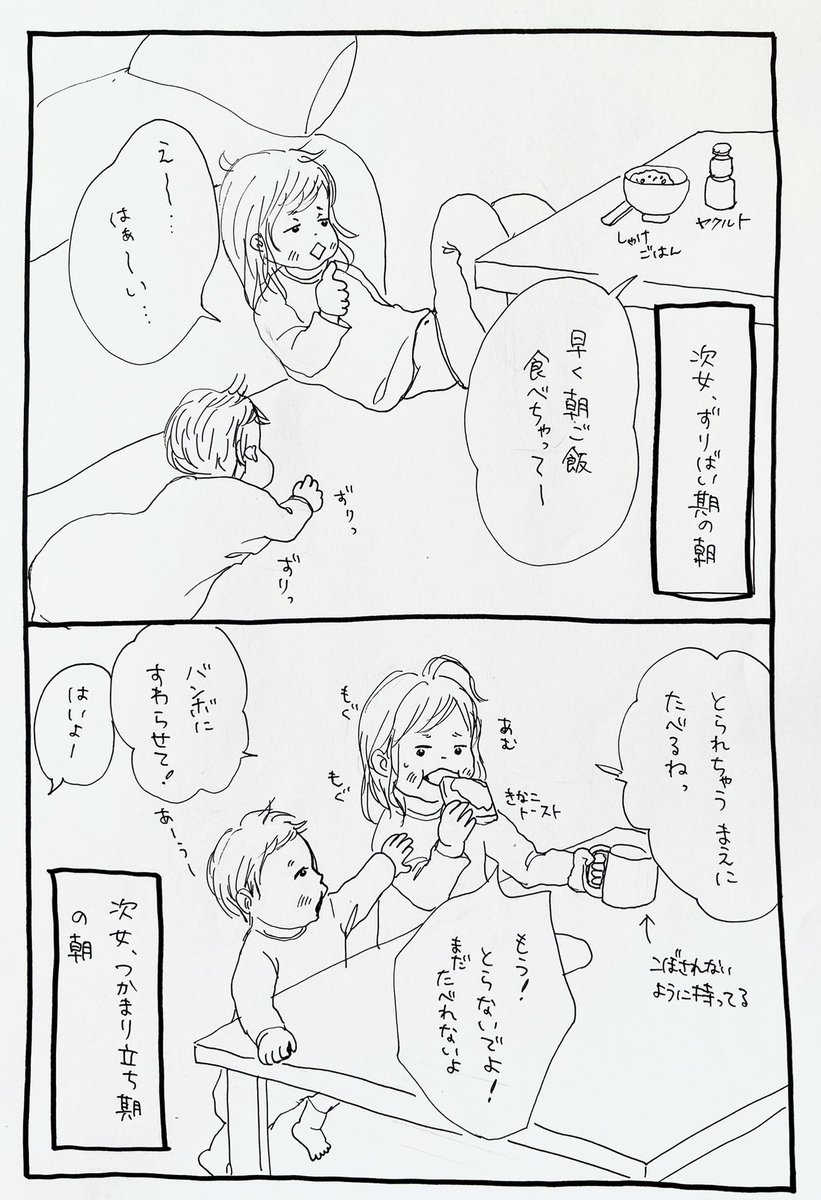 次女、ずりばい期の朝
早く朝ご飯
食べちゃってー
ヤクルト
しゃけ
ごはん
えー…
はぁ〜い…
ずりっ
ずりっ
とられちゃう まえに
たべるねっ
あむ
きなこ
トースト
もぐ
もぐ
こぼされない
ように持ってる
もう!
とらないでよ!
まだ
たべれないよ
バンボに
すわらせて!
はいよー
あーうー
次女、つかまり立ち期
の朝